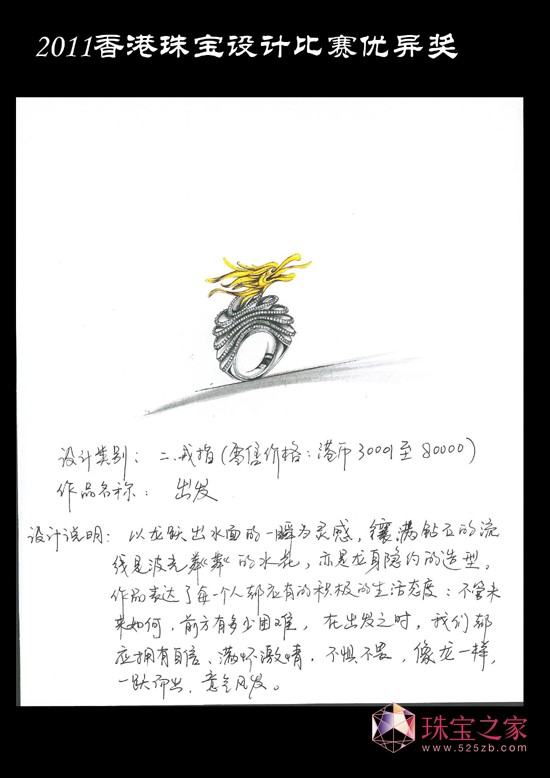 2011香港珠宝设计比赛优异奖
设计类别：二.戒指(零售价格：港币30001至80000)
作品名称：出发
设计说明：以龙跃出水面的一瞬为灵感，镶满钻石的流
线是波光粼粼的水花，亦是龙身隐约的造型。
作品表达了每一个人都应有的积极的生活态度：不管未
来如何，前方有多少困难，在出发之时，我们都
应拥有自信、满怀激情，不惧不畏，像龙一样，
一跃而出，意气风发。
珠宝之家
www.525zb.com